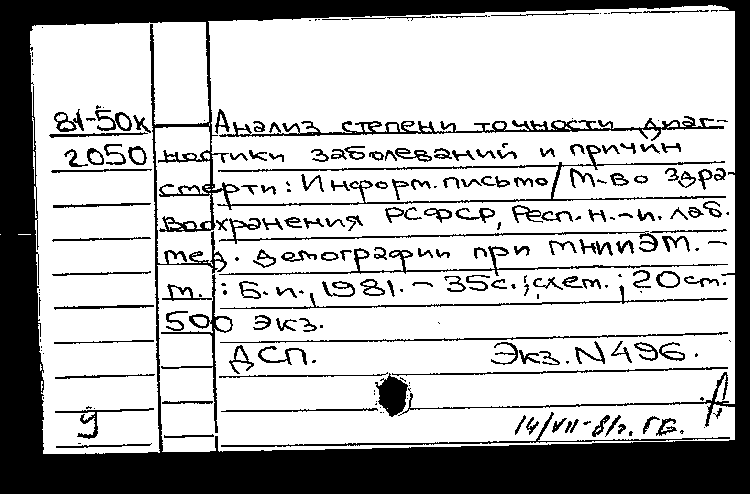 81-50к Анализ степени точности диаг-
2050 ностики заболеваний и причин
смерти: Информ. письмо / М-во здра-
воохранения РСФСР, Респ. н.-и. лаб.
мед. демографии при МНИИЭМ. -
М.: Б.и., 1981. - 35с.: схем.; 20 см. -
500 экз.
ДСП. Экз. N 496.
9
14/VII-81г. ГБ.